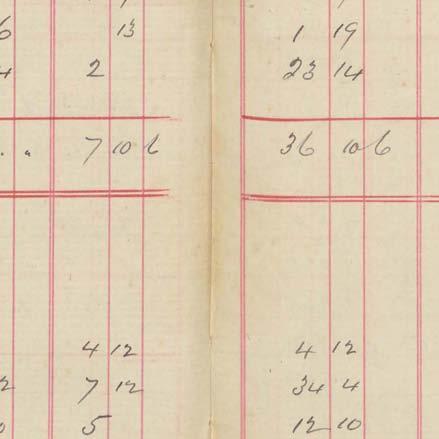 6 13 1 19
4 2 23 14
. " 7 10 6 36 10 6
4 12 4 12
2 7 12 34 4
0 5 12 10